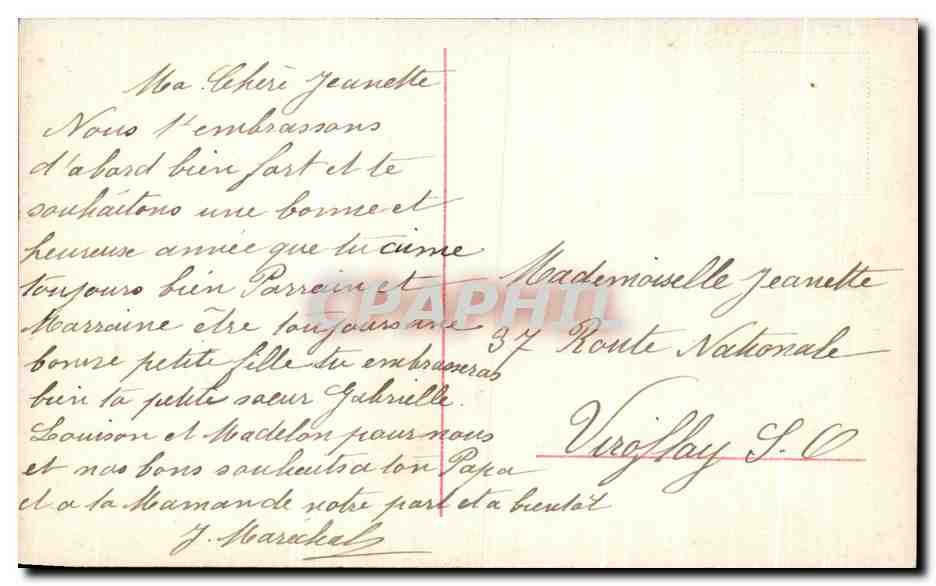 Ma Chère Jeanette
Nous t'embrassons
d'abord bien fort et te
souhaitons une bonne et
heureuse année que tu aime
toujours bien Parrain et
Marraine être toujours une
bonne petite fille tu embrasseras
bien ta petite sœur Gabrielle.
Louison et Madelon pour nous
et nos bons souhaits a ton Papa
et a ta Maman de notre part et a bientôt
J. Maréchal
Mademoiselle Jeanette
37 Route Nationale
Viroflay S.-O
CPAPHIL